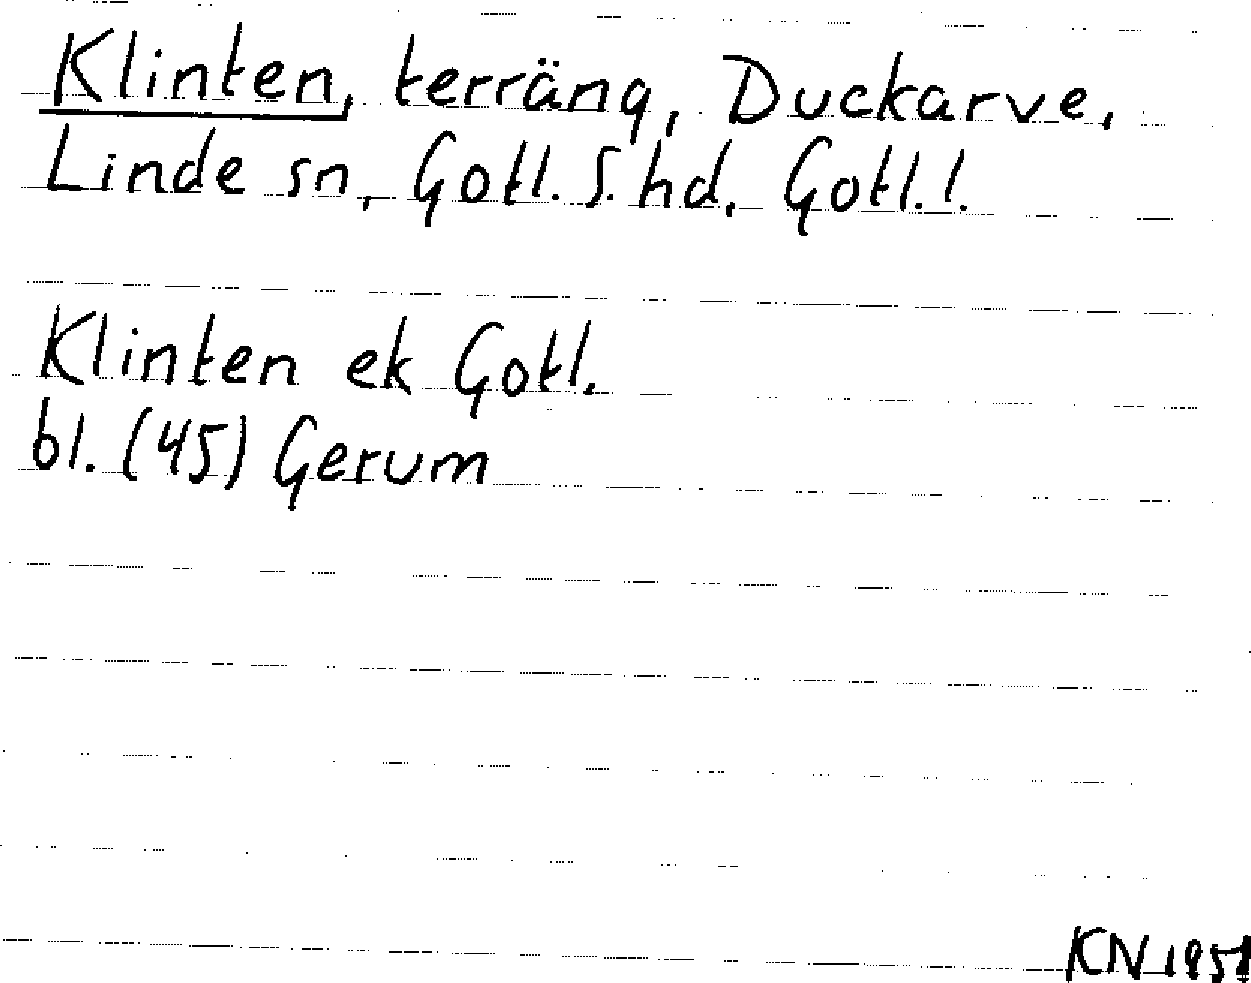 Klinten, terräng, Duckarve,
Linde sn, Gotl. S. hd, Gotl. l.
Klinten ek Gotl.
bl. (45) Gerum
KN 1951